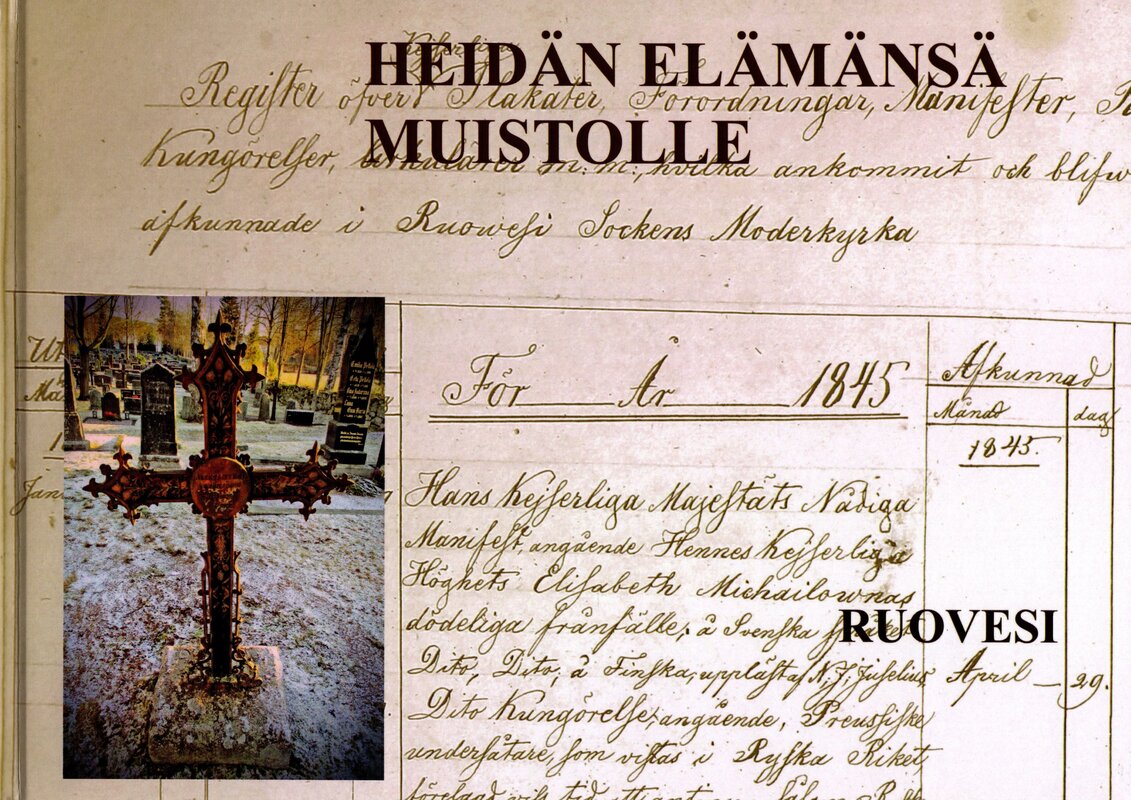 HEIDÄN ELÄMÄNSÄ
MUISTOLLE
Kejserliga
Register öfver Plakater, Förordningar, Manifester,
Kungörelser, Cirkulärer m.m., hvilka ankommit och blifv
afkunnade i Ruowesi Sockens Moderkyrka
För År 1845
Afkunnad
Månad dag
1845.
Hans Kejserliga Majestäts Nådiga
Manifest, angående Hennes Kejserliga
Höghets Elisabeth Michailownas
dödeliga frånfälle, å Svenska
RUOVESI
Dito, Dito, å Finska, uppläst af N. J. Juselius April — 29.
Dito Kungörelse, angående, Preussiske
undersåtare, som vistas i Ryska Riket